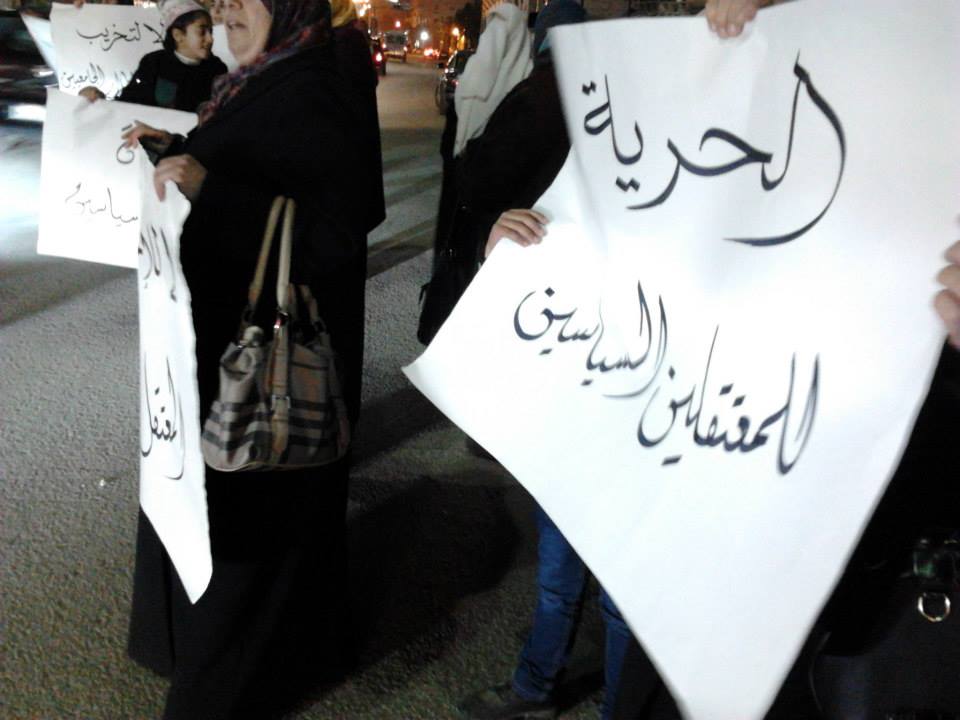 الحرية
للمعتقلين السياسين
لا لتخريب
الجامعيين
سياسيون
المعتقل